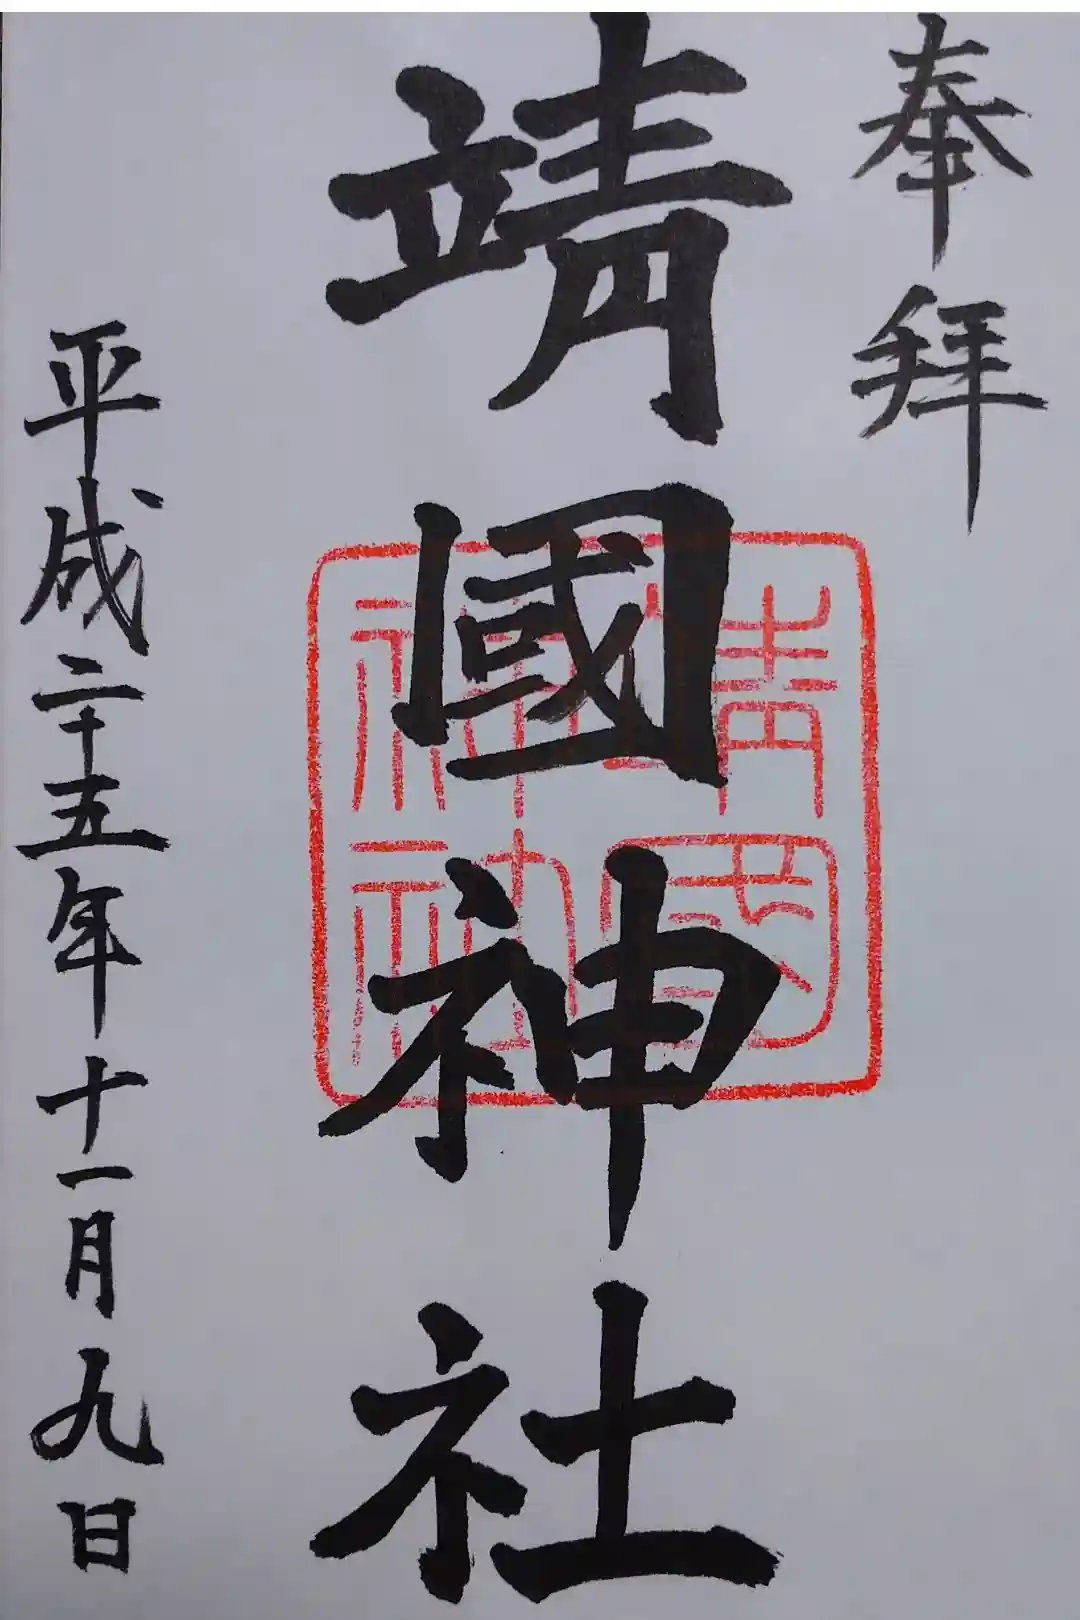 奉拝
靖國神社
靖国神社
平成二十五年十一月九日